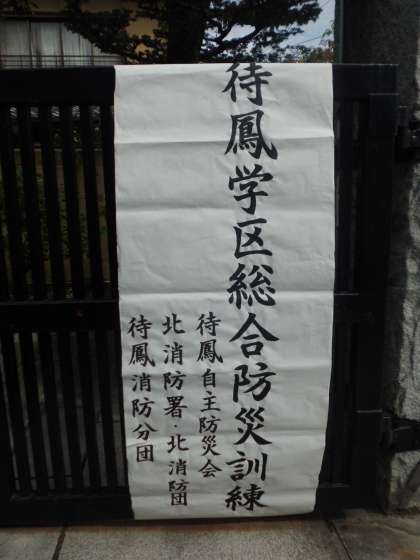 待鳳学区総合防災訓練
待鳳自主防災会
北消防署・北消防団
待鳳消防分団